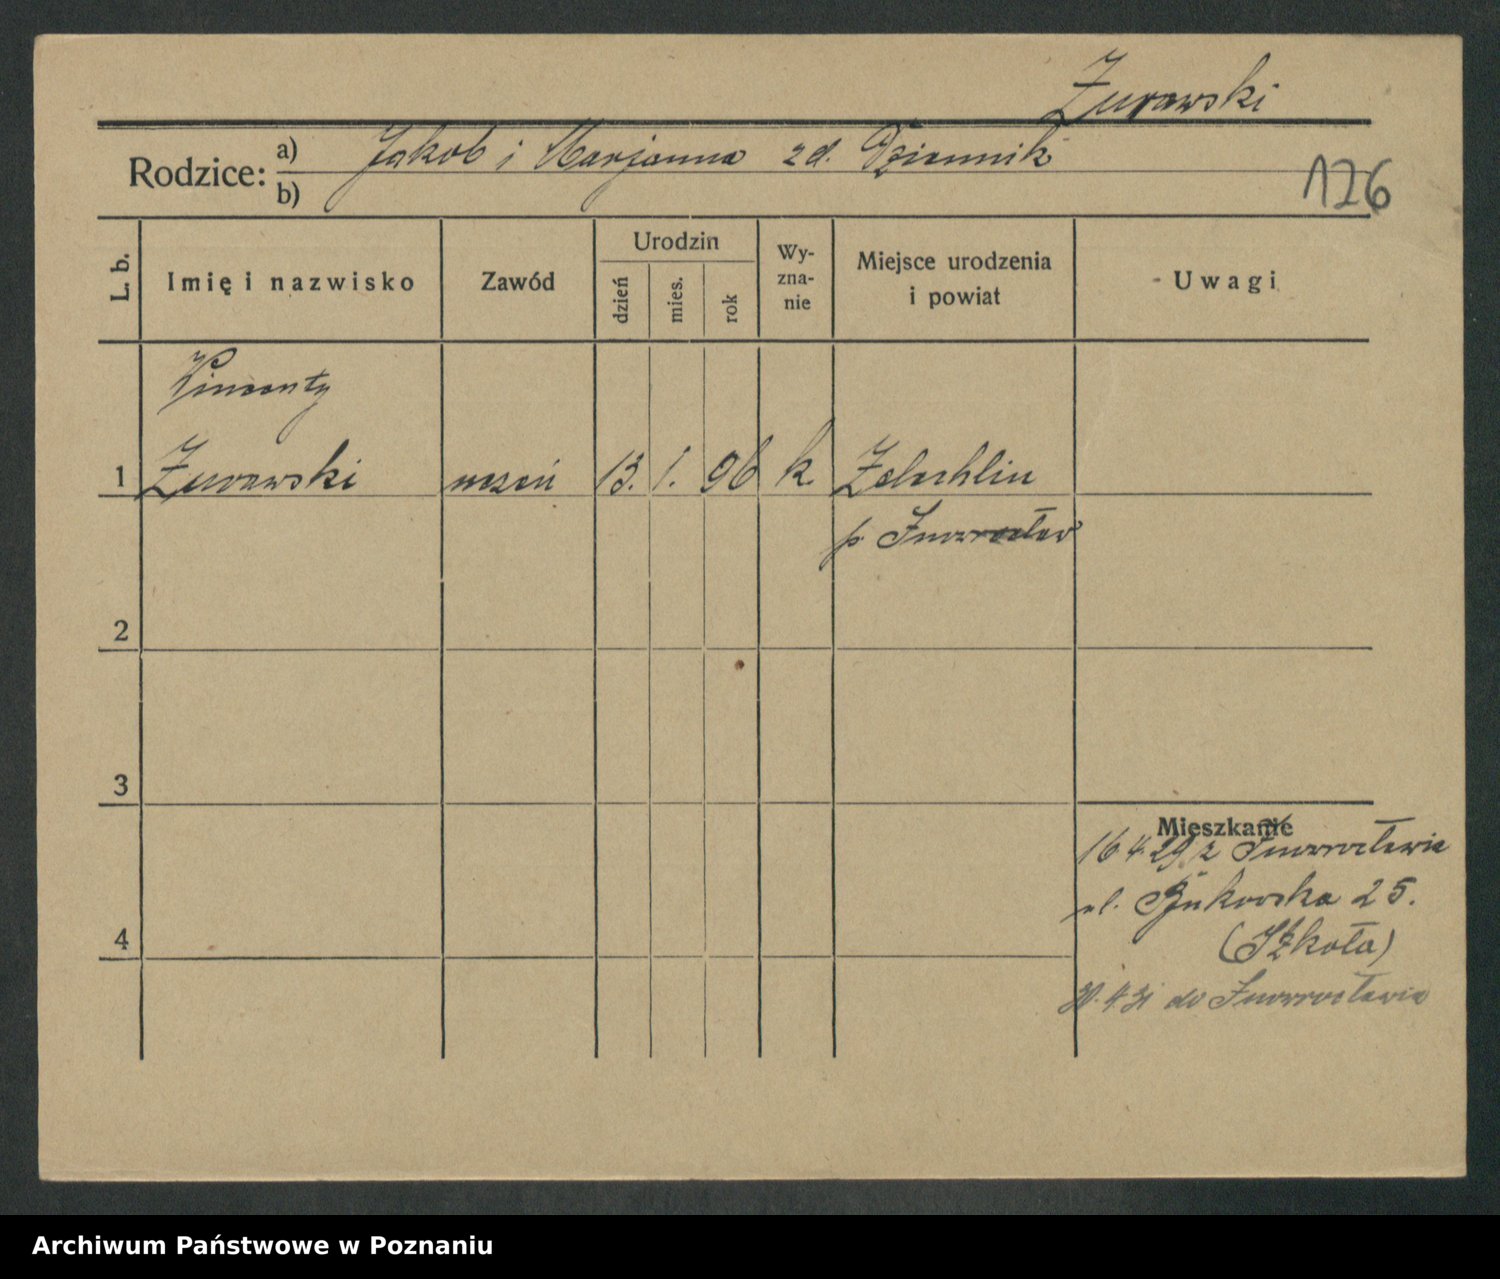 Żurawski
Rodzice: a) Jakob i Marjanna zd. Dziennik
b)
126
L. b.
Imię i nazwisko
Zawód
Urodzin
dzień
mies.
rok
Wy-
zna-
nie
Miejsce urodzenia
i powiat
Uwagi
Wincenty
1 Żurawski uczeń 13. 1. 96 k. Żelechlin
p. Inowrocław
2
3
Mieszkanie
16 4. 29 z Inowrocławia
ul. Bukowska 25.
(Szkoła)
4
30. 4. 31 do Inowrocławia
Archiwum Państwowe w Poznaniu